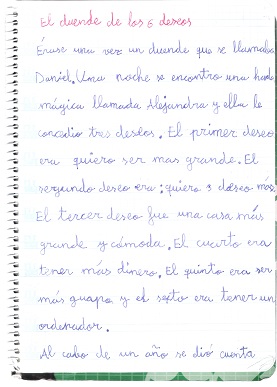 El duende de los 6 deseos
Érase una vez un duende que se llamaba
Daniel. Una noche se encontro una hada
mágica llamada Alejandra y ella le
concedio tres deseos. El primer deseo
era quiero ser mas grande. El
segundo deseo era: quiero 3 deseo más.
El tercer deseo fue una casa más
grande y cómoda. El cuarto era
tener más dinero. El quinto era ser
más guapo, y el sexto era tener un
ordenador.
Al cabo de un año se dió cuenta